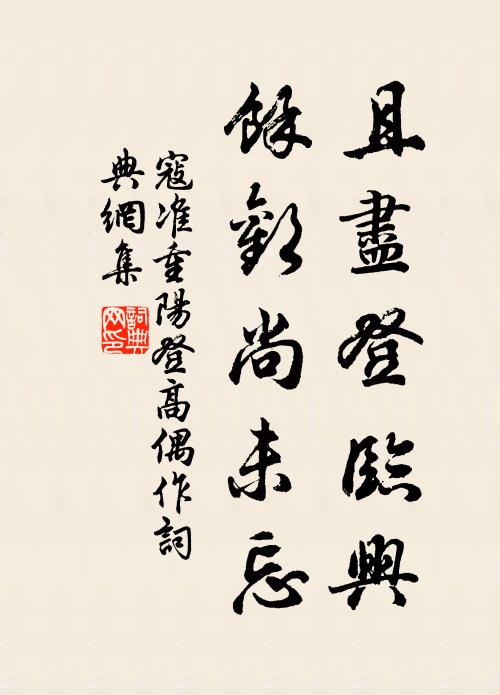 且盡登臨興
餘歡尚未忘
寇准重陽登高偶作詞
典網集
詞典
网印